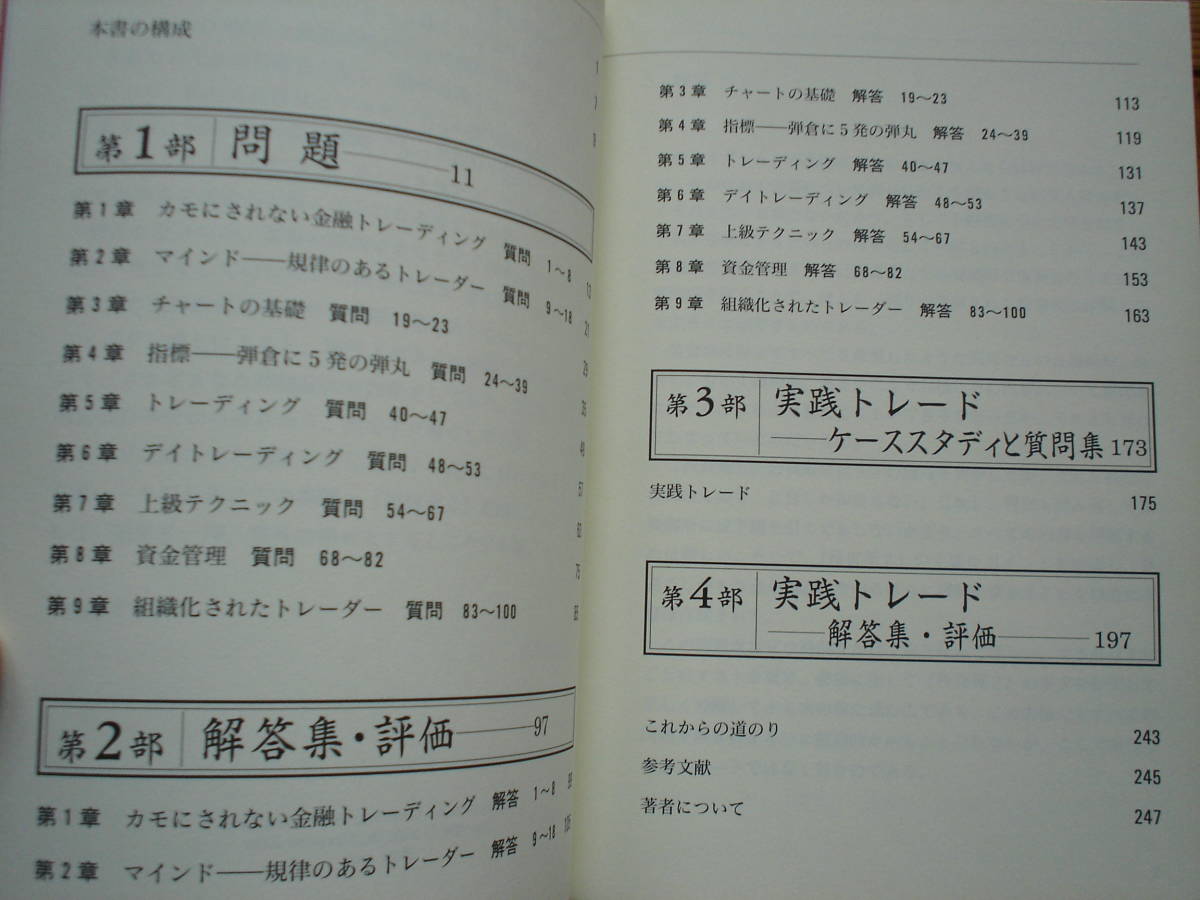 本書の構成
第1部 問題 11
第1章 カモにされない金融トレーディング 質問 1〜8 13
第2章 マインド――規律のあるトレーダー 質問 9〜18 21
第3章 チャートの基礎 質問 19〜23 29
第4章 指標――弾倉に5発の弾丸 質問 24〜39 35
第5章 トレーディング 質問 40〜47 49
第6章 デイトレーディング 質問 48〜53 57
第7章 上級テクニック 質問 54〜67 62
第8章 資金管理 質問 68〜82 75
第9章 組織化されたトレーダー 質問 83〜100 85
第2部 解答集・評価 97
第1章 カモにされない金融トレーディング 解答 1〜8 99
第2章 マインド――規律のあるトレーダー 解答 9〜18 105
第3章 チャートの基礎 解答 19〜23 113
第4章 指標――弾倉に5発の弾丸 解答 24〜39 119
第5章 トレーディング 解答 40〜47 131
第6章 デイトレーディング 解答 48〜53 137
第7章 上級テクニック 解答 54〜67 143
第8章 資金管理 解答 68〜82 153
第9章 組織化されたトレーダー 解答 83〜100 163
第3部 実践トレード
――ケーススタディと質問集 173
実践トレード 175
第4部 実践トレード
――解答集・評価 197
これからの道のり 243
参考文献 245
著者について 247